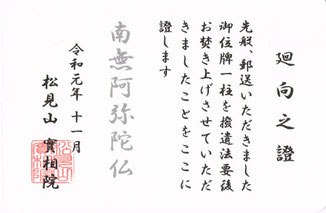 廻向之證
先般、郵送いただきました
御位牌一柱を撥遣法要後
お焚き上げさせていただ
きましたことをここに
證します
南無阿弥陀仏
令和元年 十一月
松見山 實相院